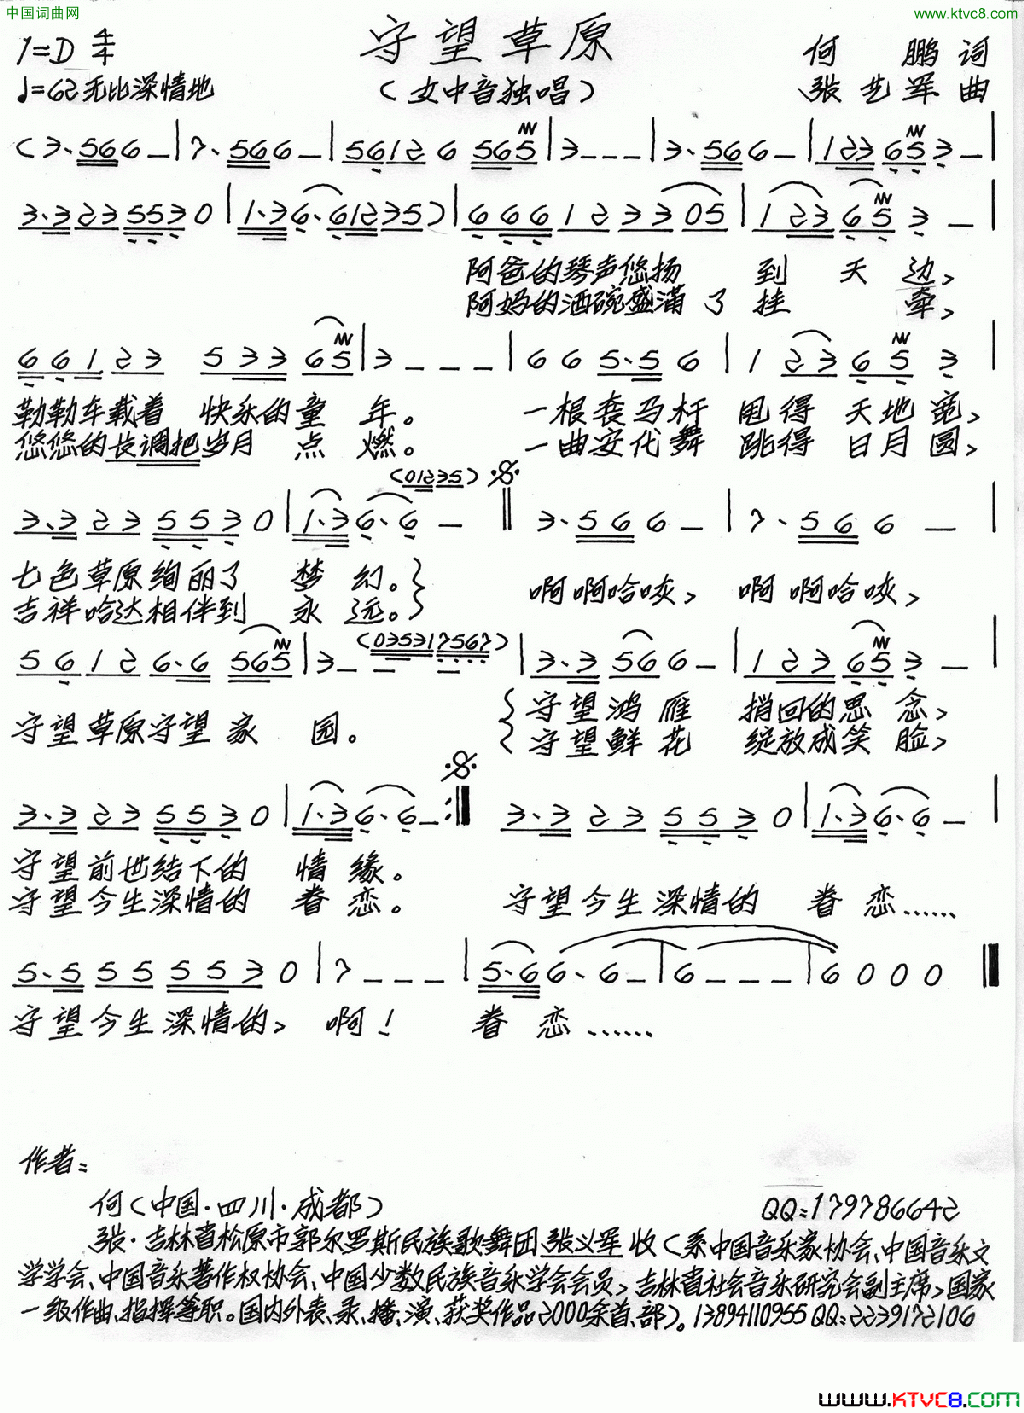 中国词曲网
www.ktvc8.com
1=D 4/4
守望草原
何 鹏 词
♩=62 无比深情地
(女中音独唱)
张艺军 曲
(3·566 6 - | 7·566 6 - | 5612 6 5665 | 3 - - - | 3·566 6 - | 123 65 3 -
3·3 23 553 0 | 1·36·612335) | 6 66 1 2 3 3 05 | 1 23 65 3 -
阿爸的琴声悠扬 到 天 边,
阿妈的酒碗盛满 了 挂 牵,
661 23 533 65 | 3 - - - | 66 5·5 6 | 1 23 6 5 3
勒勒车载着 快乐的童 年。 一根套马杆 甩得 天地宽,
悠悠的长调把岁月 点 燃。 一曲安代舞 跳得 日月圆,
(01235)
3·3 23 553 0 | 1·36·6 - 3·566 - | 7·566 -
七色草原绚丽了 梦 幻。 啊啊哈咴, 啊啊哈咴,
吉祥哈达相伴到 永 远。
(035317567)
5612 6·6 565 | 3 - 3·3 566 - | 123 65 3 -
守望草原守望家 园。 守望鸿雁 捎回的思 念,
守望鲜花 绽放成笑 脸,
3·3 23 553 0 | 1·36·6 - 3·3 23 553 0 | 1·36·6 -
守望前世结下的 情 缘。
守望今生深情的 眷 恋。 守望今生深情的 眷 恋……
5·5 55 553 0 | 7 - - - | 5·66·6 - | 6 - - - | 6 0 0 0
守望今生深情的, 啊! 眷 恋……
作者:
何(中国·四川·成都) QQ:179786642
张·吉林省松原市郭尔罗斯民族歌舞团张义军收(系中国音乐家协会、中国音乐文
学学会、中国音乐著作权协会、中国少数民族音乐学会会员,吉林省社会音乐研究会副主席,国家
一级作曲、指挥等职。国内外表、录、播、演、获奖作品2000余首、部)。13894110955 QQ:2239172106
www.KTVC8.com